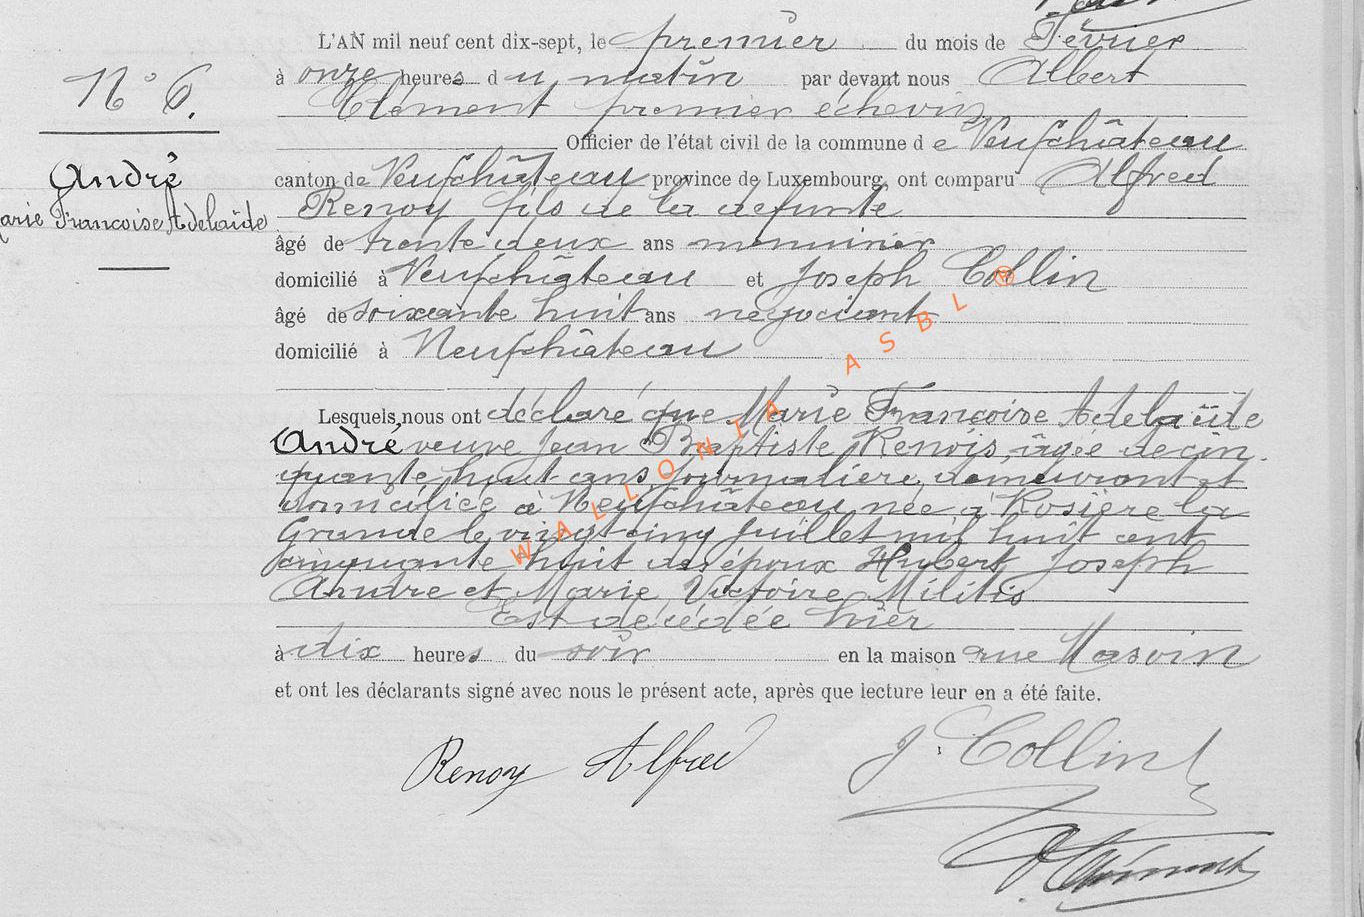 N° 6.
André
Marie Francoise Adelaïde
L'AN mil neuf cent dix-sept, le premier du mois de Février
à onze heures du matin par devant nous Albert
Clément premier échevin
Officier de l'état civil de la commune de Neufchâteau
canton de Neufchâteau province de Luxembourg, ont comparu Alfred
Renoy fils de la défunte
âgé de trente deux ans menuisier
domicilié à Neufchâteau et Joseph Collin
âgé de soixante huit ans négociant
domicilié à Neufchâteau
Lesquels nous ont déclaré que Marie Françoise Adelaïde
André veuve Jean Baptiste Renois, âgée de cin-
quante huit ans journalière, demeurant et
domiciliée à Neufchâteau née à Rosière la
Grande le vingt cinq juillet mil huit cent
cinquante huit des époux Hubert Joseph
André et Marie Victoire Militis
Est décédée hier
à dix heures du soir en la maison rue
et ont les déclarants signé avec nous le présent acte, après que lecture leur en a été faite.
Renoy Alfred
J. Collin
AClément
WALLONIA ASBL ®